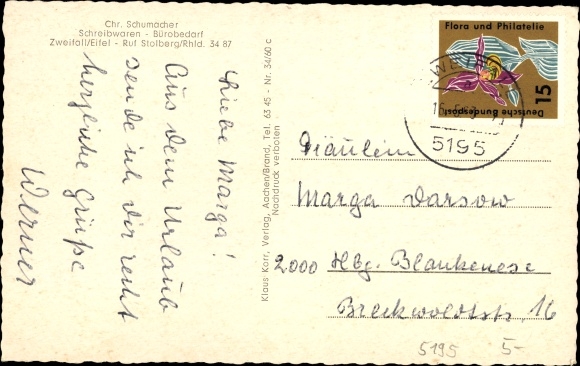 Chr. Schumacher
Schreibwaren - Bürobedarf
Zweifall/Eifel - Ruf Stolberg/Rhld. 34 87
Liebe Marga!
Aus dem Urlaub
sende ich dir recht
herzliche Grüße
Werner
Klaus Korr, Verlag, Aachen/Brand, Tel. 63 45 - Nr. 34/60 c
Nachdruck verboten
Flora und Philatelie
15
Deutsche Bundespost
5195
Fräulein
Marga Darsow
2000 Hbg. Blankenese
Breckwoldtstr. 16
5195 5-